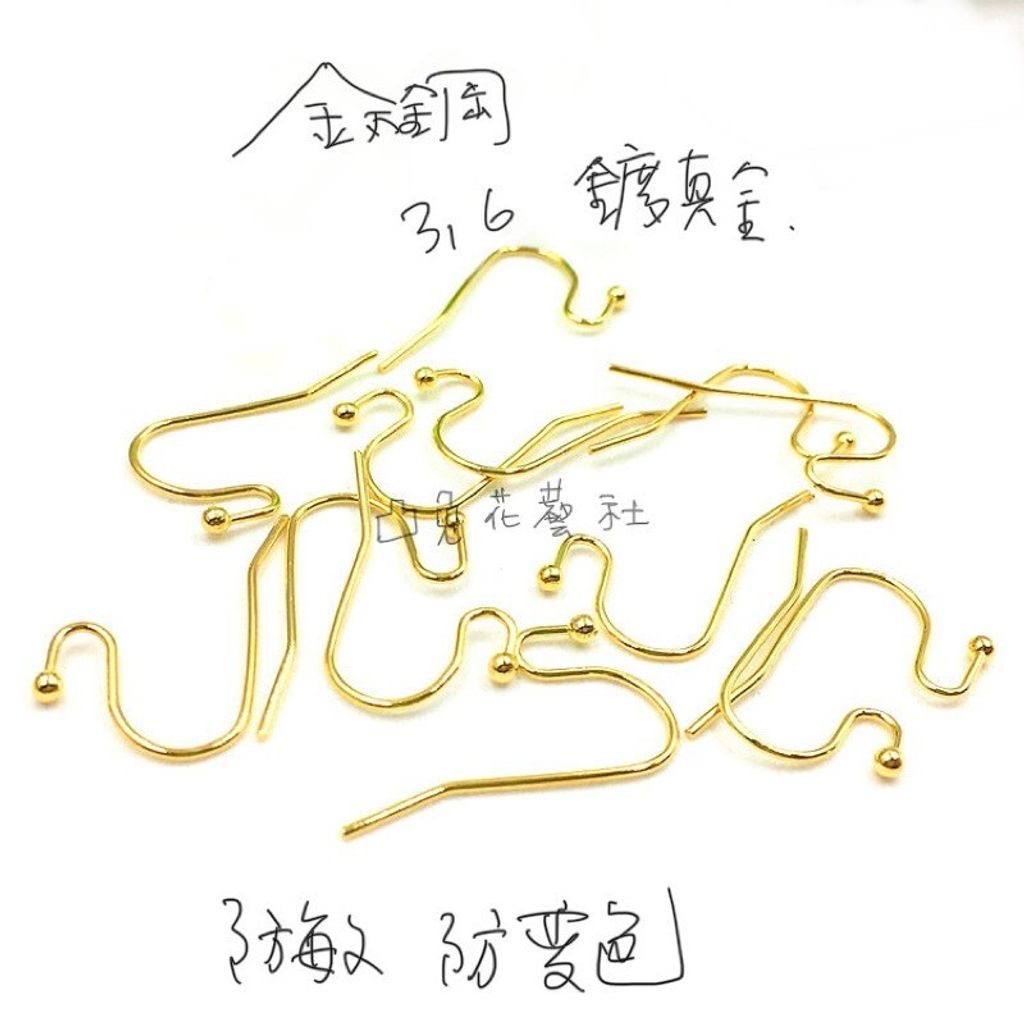 鈦鋼
316 鍍真金.
花藝社
防敏 防变色